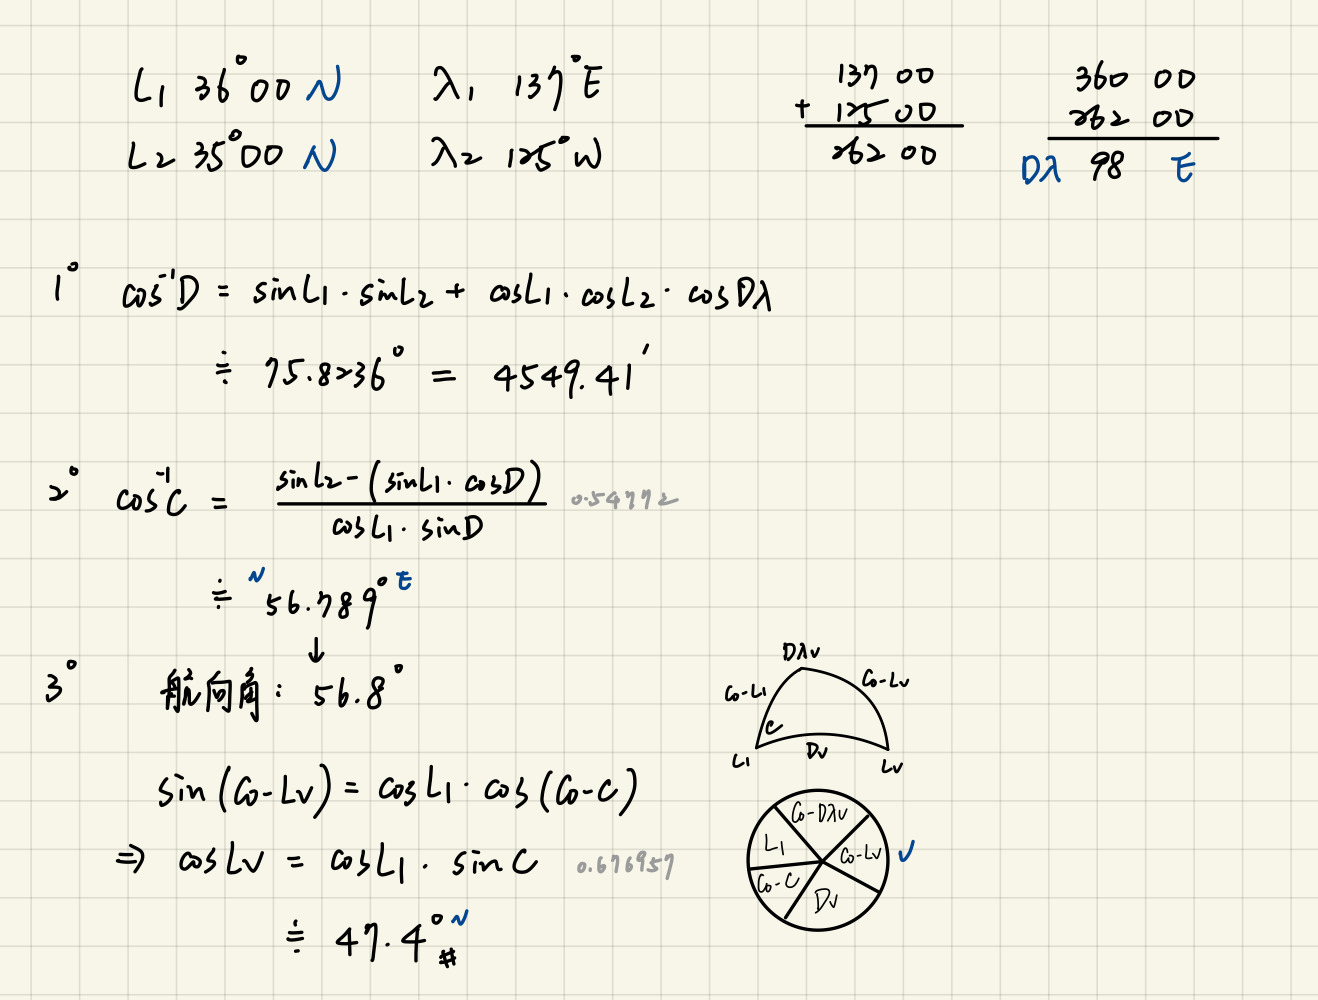 L₁ 36°00 N λ₁ 137°E
L₂ 35°00 N λ₂ 125°W
137 00
+ 125 00
262 00
360 00
262 00
Dλ 98 E
1° cos⁻¹D = sinL₁ · sinL₂ + cosL₁ · cosL₂ · cosDλ
≑ 75.8236° = 4549.41′
2° cos⁻¹C = (sinL₂ - (sinL₁ · cosD)) / (cosL₁ · sinD) 0.54772
≑ N 56.789° E
↓
3° 航向角: 56.8°
sin (Co-Lv) = cosL₁ · cos (Co-C)
⇒ cosLv = cosL₁ · sinC 0.676957
≑ 47.4° N #
Dλv
Co-L₁ Co-Lv
C
L₁ Dv Lv
Co-Dλv
L₁ Co-Lv ✓
Co-C Dv